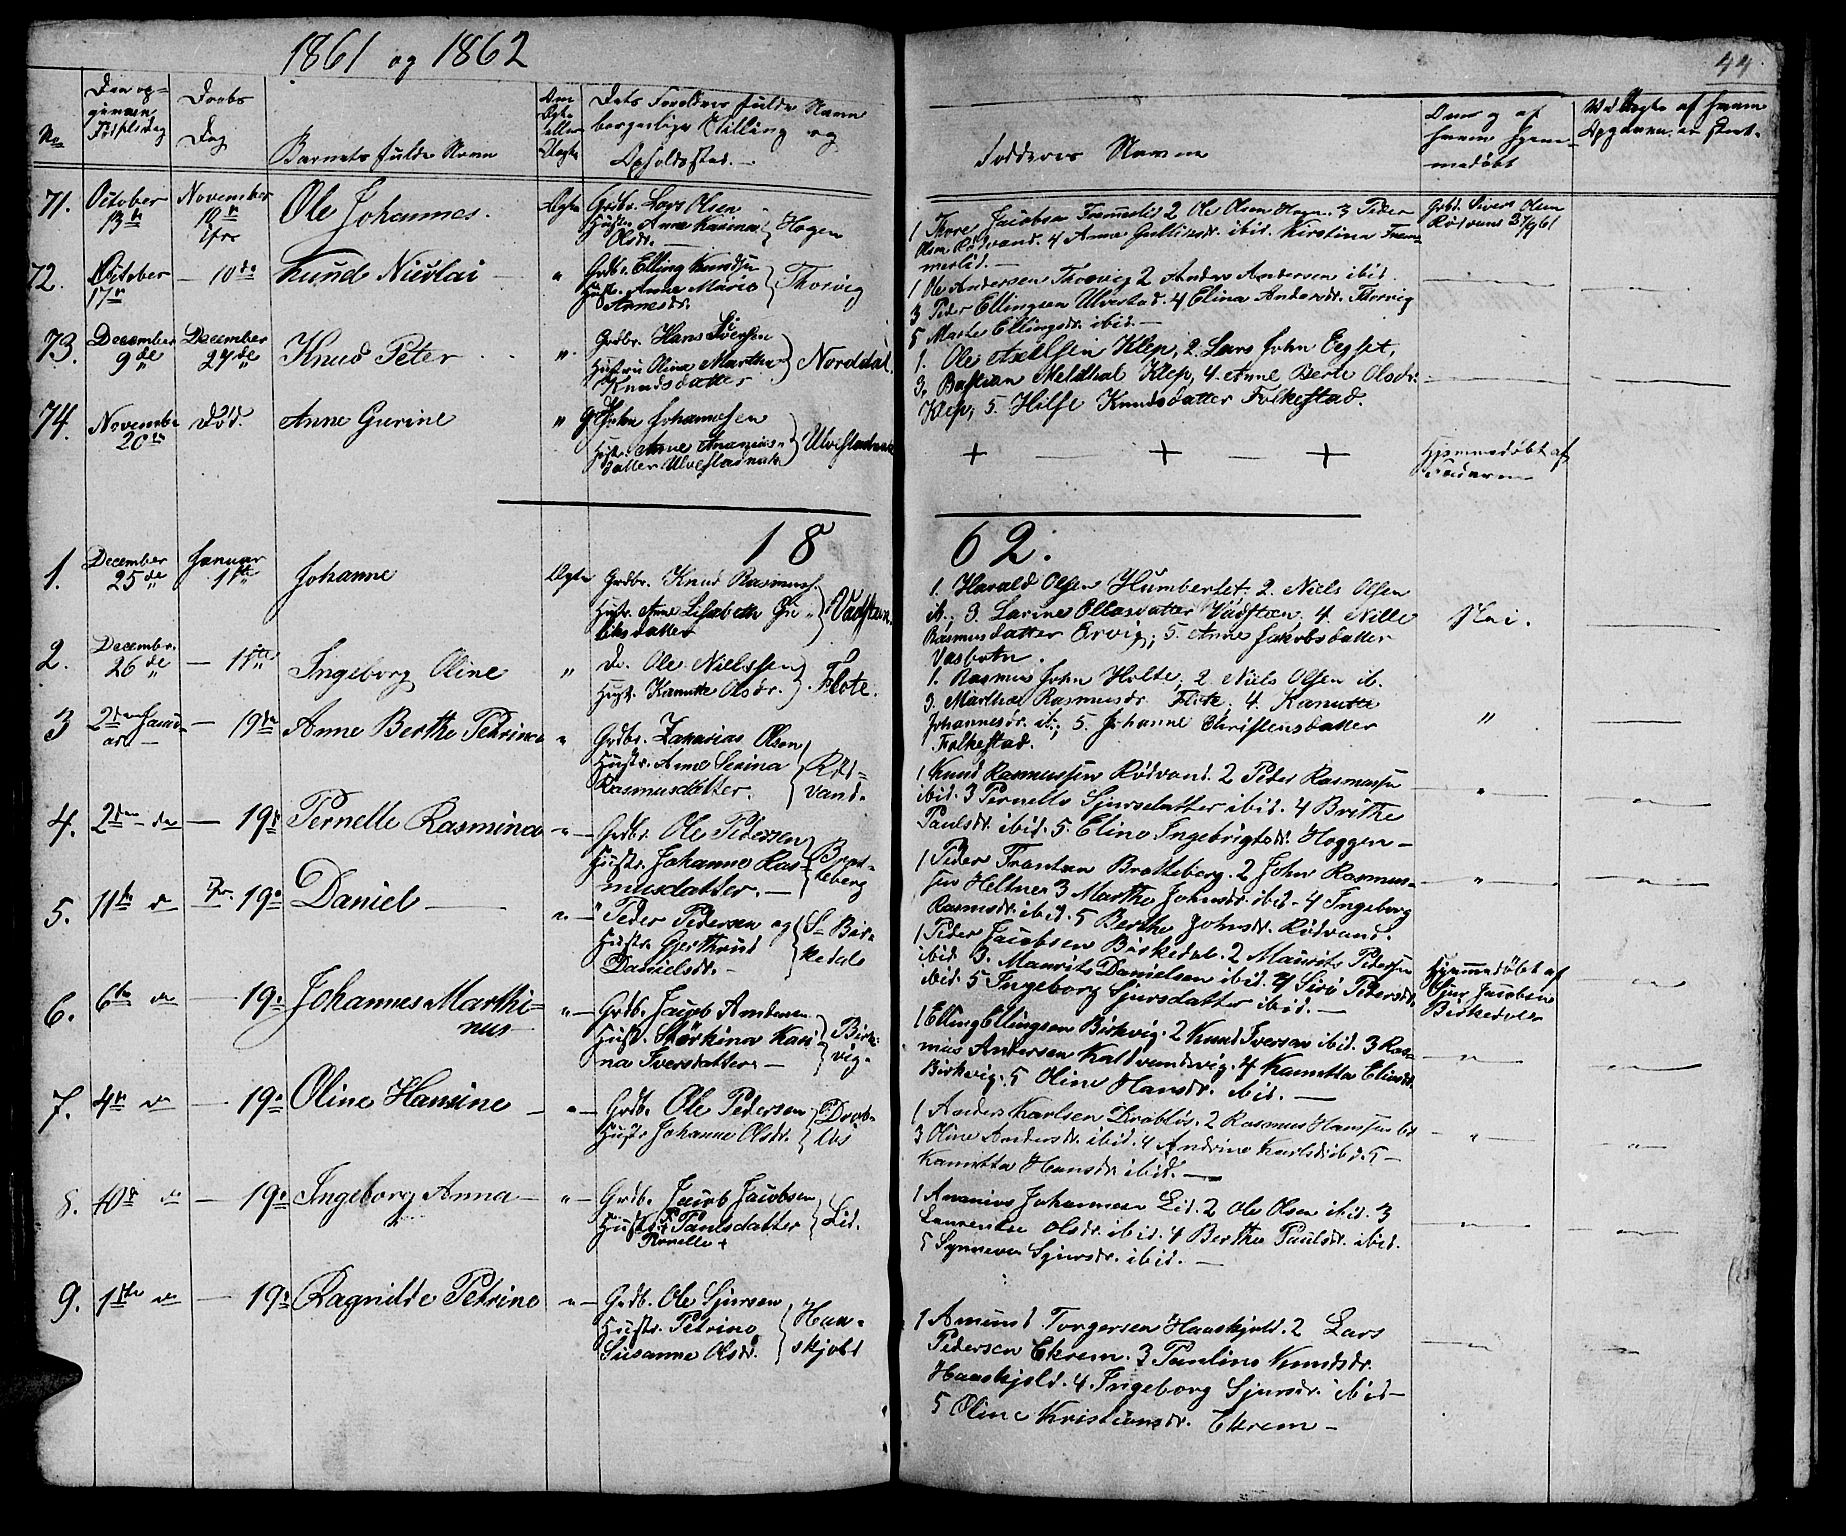 1861 og 1862
44
No
Den op-
givne
Fødselsdag
Daabs
Dag
Barnets fulde Navn
Om
Ægte
eller
Uægte
Dets Forældres fulde Navn
borgerlige Stilling og
Opholdssted.
Faddernes Navne
Om og af
hvem hjem-
medøbt
71. October 13de November 10de Ole Johannes. Ægte
Grdbr. Lars Olsen
Hustr. Anne Karina Olsdr. Hogen
1 Thore Jacobsen Tremmerlid 2 Ole Olsen Hogen. 3 Peder
Olsen Rødvand. 4 Anne Gulliksdr. ibid. Kirstina Trem-
merlid.
Grbd. Siver Olsen
Rødvand
72. October 17de — 10de Knud Nicolai "
Grdbr. Elling Knudsen
Hustr. Anne Marie Arnesdr. Thorvig
1 Ole Andersen Thorvig 2 Anders Andersen ibid.
3 Peder Ellingsen Ulvestad. 4 Elina Andersdr. Thorvig
5 Marte Ellingsdr. ibid.
73. December 9de December 27de Knud Peter "
Grdbr. Hans Iversen
Hustru Olina Martha Knudsdatter Norddal.
1. Ole Axelsen Klep, 2. Lars John Eegset,
3. Bastian Meldhal Klep, 4. Anne Berte Olsdr.
Klep, 5. Hilse Knudsdatter Folkestad.
74. November 20de Død. Anne Gurine "
John Johannesen
Hustr. Anne Ananias-
datter Ulvestadnak Ulvestadnak
+ — + — +
Hjemmedøbt af
Faderen
1862.
1. December 25de Januar 1ste Johanne Ægte
Grdbr. Knud Rasmuss.
Hustr. Anne Lisabeth Eri-
iksdatter Vadsteen.
1. Harald Olsen Humberset; 2. Niels Olsen
ib.; 3. Larine Ollasdatter Vadsteen, 4. Nille
Rasmusdatter Ervig; 5. Anne Jakobsdatter
Vasbotn.
Nei.
2. December 26de — 1ste Ingeborg Oline "
Do. Ole Nielssen
Hustr. Kanutte Olsdr. Flote.
1. Rasmus John Holte, 2. Niels Olsen ib.
3. Marthe Rasmusdr. Flote, 4. Kanutte
Johannesdr. ib.; 5. Johanne Christensdatter
Folkestad.
"
3 2den Janu-
ar — 19de Anne Berthe Petrine "
Grdbr. Zakarias Olsen
Hustr. Anne Serina
Rasmusdatter. Rød-
vand.
1 Knud Rasmussen Rødvand. 2 Peder Rasmussen
ibid. 3 Pernelle Sjursdatter ibid. 4 Brithe
Paulsdr. ibid. 5. Eline Ingebrigtsdr. Hoggen —
4. 2den do — 19de Pernelle Rasmina "
Grdbr. Ole Pedersen
Hustr. Johanne Ras-
musdatter. — Brat-
teberg
1 Peder Bratteberg. 2 John Rasmus-
sen Heltne 3 Marthe Johnsdr. ibid. 4 Ingeborg
Rasmsdr. ibid. 5 Berthe Johnsdr. Rødvand.
5. 11te do — 19de Daniel "
Peder Pedersen og
Hustr. Gjertrud
Danielsdr. — Bir-
kedal
1 Peder Jacobsen Birkedal. 2 Maurits Pedersen
ibid. 3. Maurits Danielsen ibid. 4 Siri Pedersdr.
ibid. 5 Ingeborg Sjursdatter ibid. —
Hjemmedøbt af
Sjur Jacobsen
Birkedal
6. 6te do — 19de Johannes Marthi-
nus "
Grdb. Jacob Andersen
Hust. Størkina Kari-
na Iversdatter. — Birk-
vig.
1 Elling Ellingsen Birkvig. 2 Knud Iversen ibid. 3 Ras-
mus Andersen Kaldvandsvig. 4 Kanutta Eliasdr.
Birkvig. 5 Oline Hansdr. ibid. —
7. 4de do — 19de Oline Hansine "
Grdb. Ole Pedersen
Hustr Johanne Olsdr. Drab-
løs
1 Anders Karlsen Drabløs. 2 Rasmus Hansen ibd
3 Oline Andersdr. ibid. 4 Andrine Karlsdr ibid. 5 —
Kanutta Hansdr. ibid. —
8. 10de do — 19de Ingeborg Anna "
Grdb. Jacob Jacobsen
Hustr. Paulsdatter Lid.
Pernelle +
1 Ananias Johannesen Lid. 2 Ole Olsen ibid. 3
Laurentse Olsdr. ibid. 4 Berthe Paulsdr. ibid.
5 Synneva Sjursdr. ibid. —
9. 1ste do — 19de Ragnilde Petrine "
Grdb. Ole Sjursen
Hustr. Petrine
Susanne Olsdr. Haa-
skjold
1 Amund Torgersen Haaskjold. 2 Lars
Pedersen Ekrem. 3 Pauline Knudsdr.
Haaskjold. 4. Ingeborg Sjursdr. ibid —
5 Oline Kristiansdr. Ekrem —